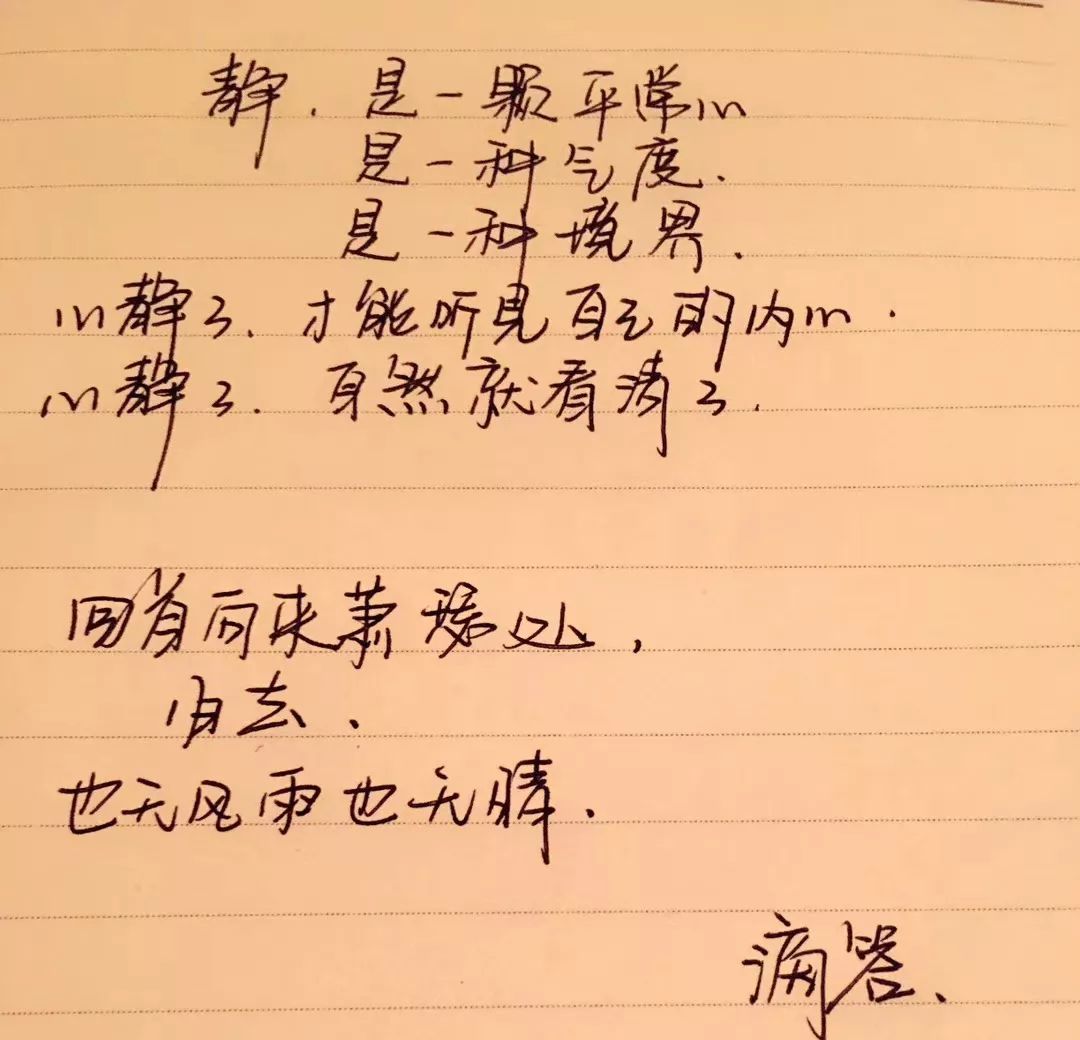 静.是一颗平常心
是一种气度.
是一种境界.
心静了.才能听见自己的内心.
心静了.自然就看清了.
回首向来萧瑟处,
归去、
也无风雨也无晴.
滴答、